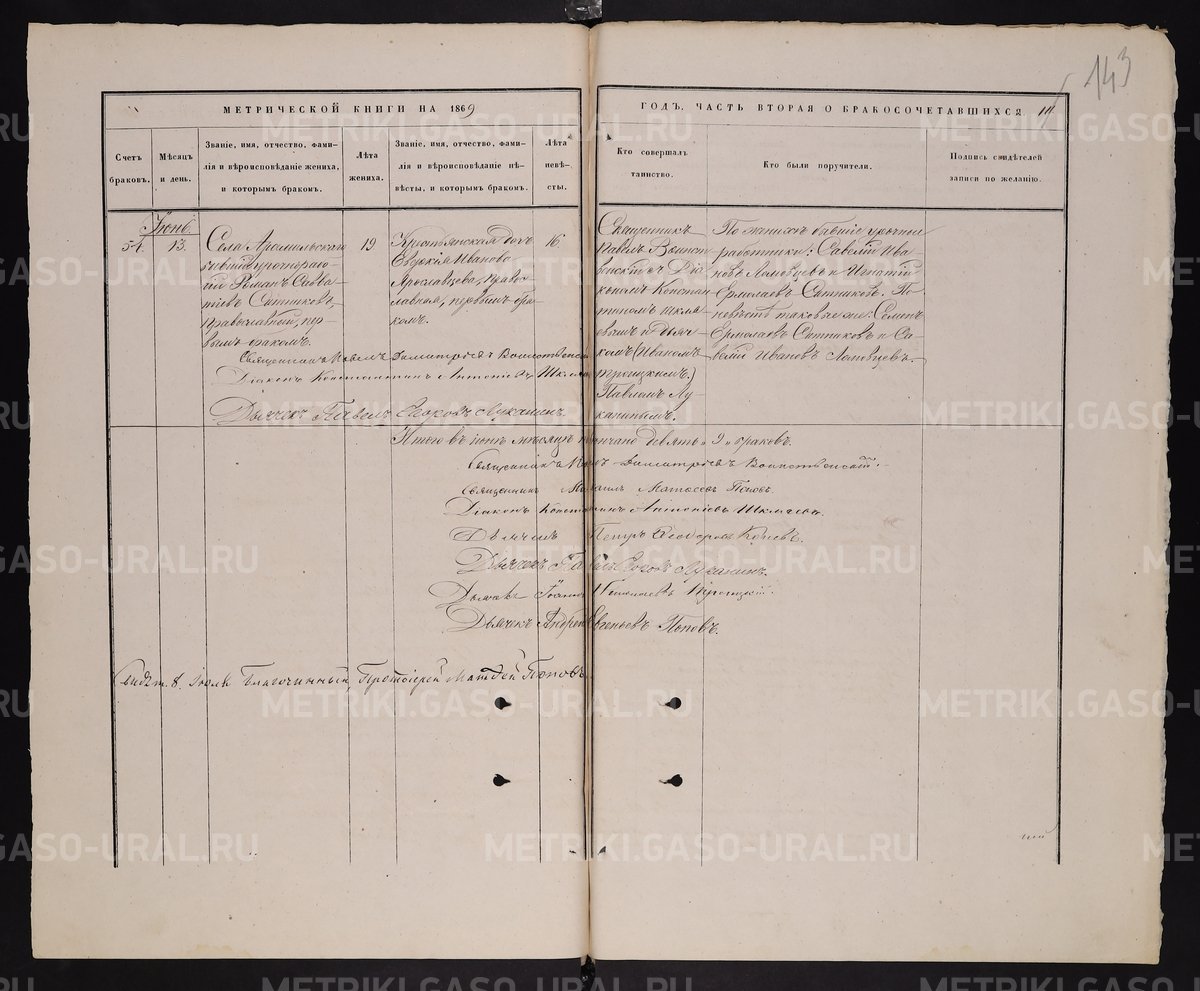 143
МЕТРИЧЕСКОЙ КНИГИ НА 1869
ГОДЪ. ЧАСТЬ ВТОРАЯ О БРАКОСОЧЕТАВШИХСЯ
Счетъ браковъ.
Мѣсяцъ и день.
Званіе, имя, отчество, фами-
лія и вѣроисповѣданіе жениха,
и которымъ бракомъ.
Лѣта жениха.
Званіе, имя, отчество, фами-
лія и вѣроисповѣданіе не-
вѣсты, и которымъ бракомъ.
Лѣта невѣ-
сты.
Кто совершалъ
таинство.
Кто были поручители.
Подпись свидѣтелей
записи по желанію.
Іюнь
54
13
Села Арамильскаго
бывшій урочнорабо-
чій Романъ Савва-
тіевъ Ситниковъ,
православной, пер-
вымъ бракомъ.
19
Крестьянская дочь
Евдокія Иванова
Ярославцева, право-
славная, первымъ бра-
комъ.
16
Священникъ
Павелъ Воинст-
венскій съ Діа-
кономъ Констан-
тиномъ Шкма-
евымъ и дьяч-
комъ (Иваномъ
Троицкимъ.)
Павломъ Лу-
канинымъ.
По женихѣ бывшіе урочные
работники: Савелій Ива-
новъ Ломовцевъ и Игнатій
Ермолаевъ Ситниковъ. По
невѣстѣ таковые же: Семенъ
Ермолаевъ Ситниковъ и Са-
велій Ивановъ Ломовцевъ.
Священникъ Павелъ Димитріевъ Воинственскій
Діаконъ Константинъ Антоніевъ
Дьячекъ Павелъ Егоровъ Луканинъ.
Итого въ іюнѣ мѣсяцѣ вѣнчано девять "9" браковъ.
Священникъ Павелъ Димитріевъ Воинственскій.
Священникъ Михаилъ Матѳеевъ Поповъ.
Діаконъ Константинъ Антоніевъ
Дьячекъ Петръ Ѳеодоровъ
Дьячекъ Павелъ Егоровъ Луканинъ.
Дьячекъ Іоаннъ Троицкій.
Дьячекъ Андрей Евгеньевъ Поповъ.
Свидѣт. 8. Іюля Благочинный, Протоіерей Матѳей Поповъ.
METRIKI.GASO-URAL.RU